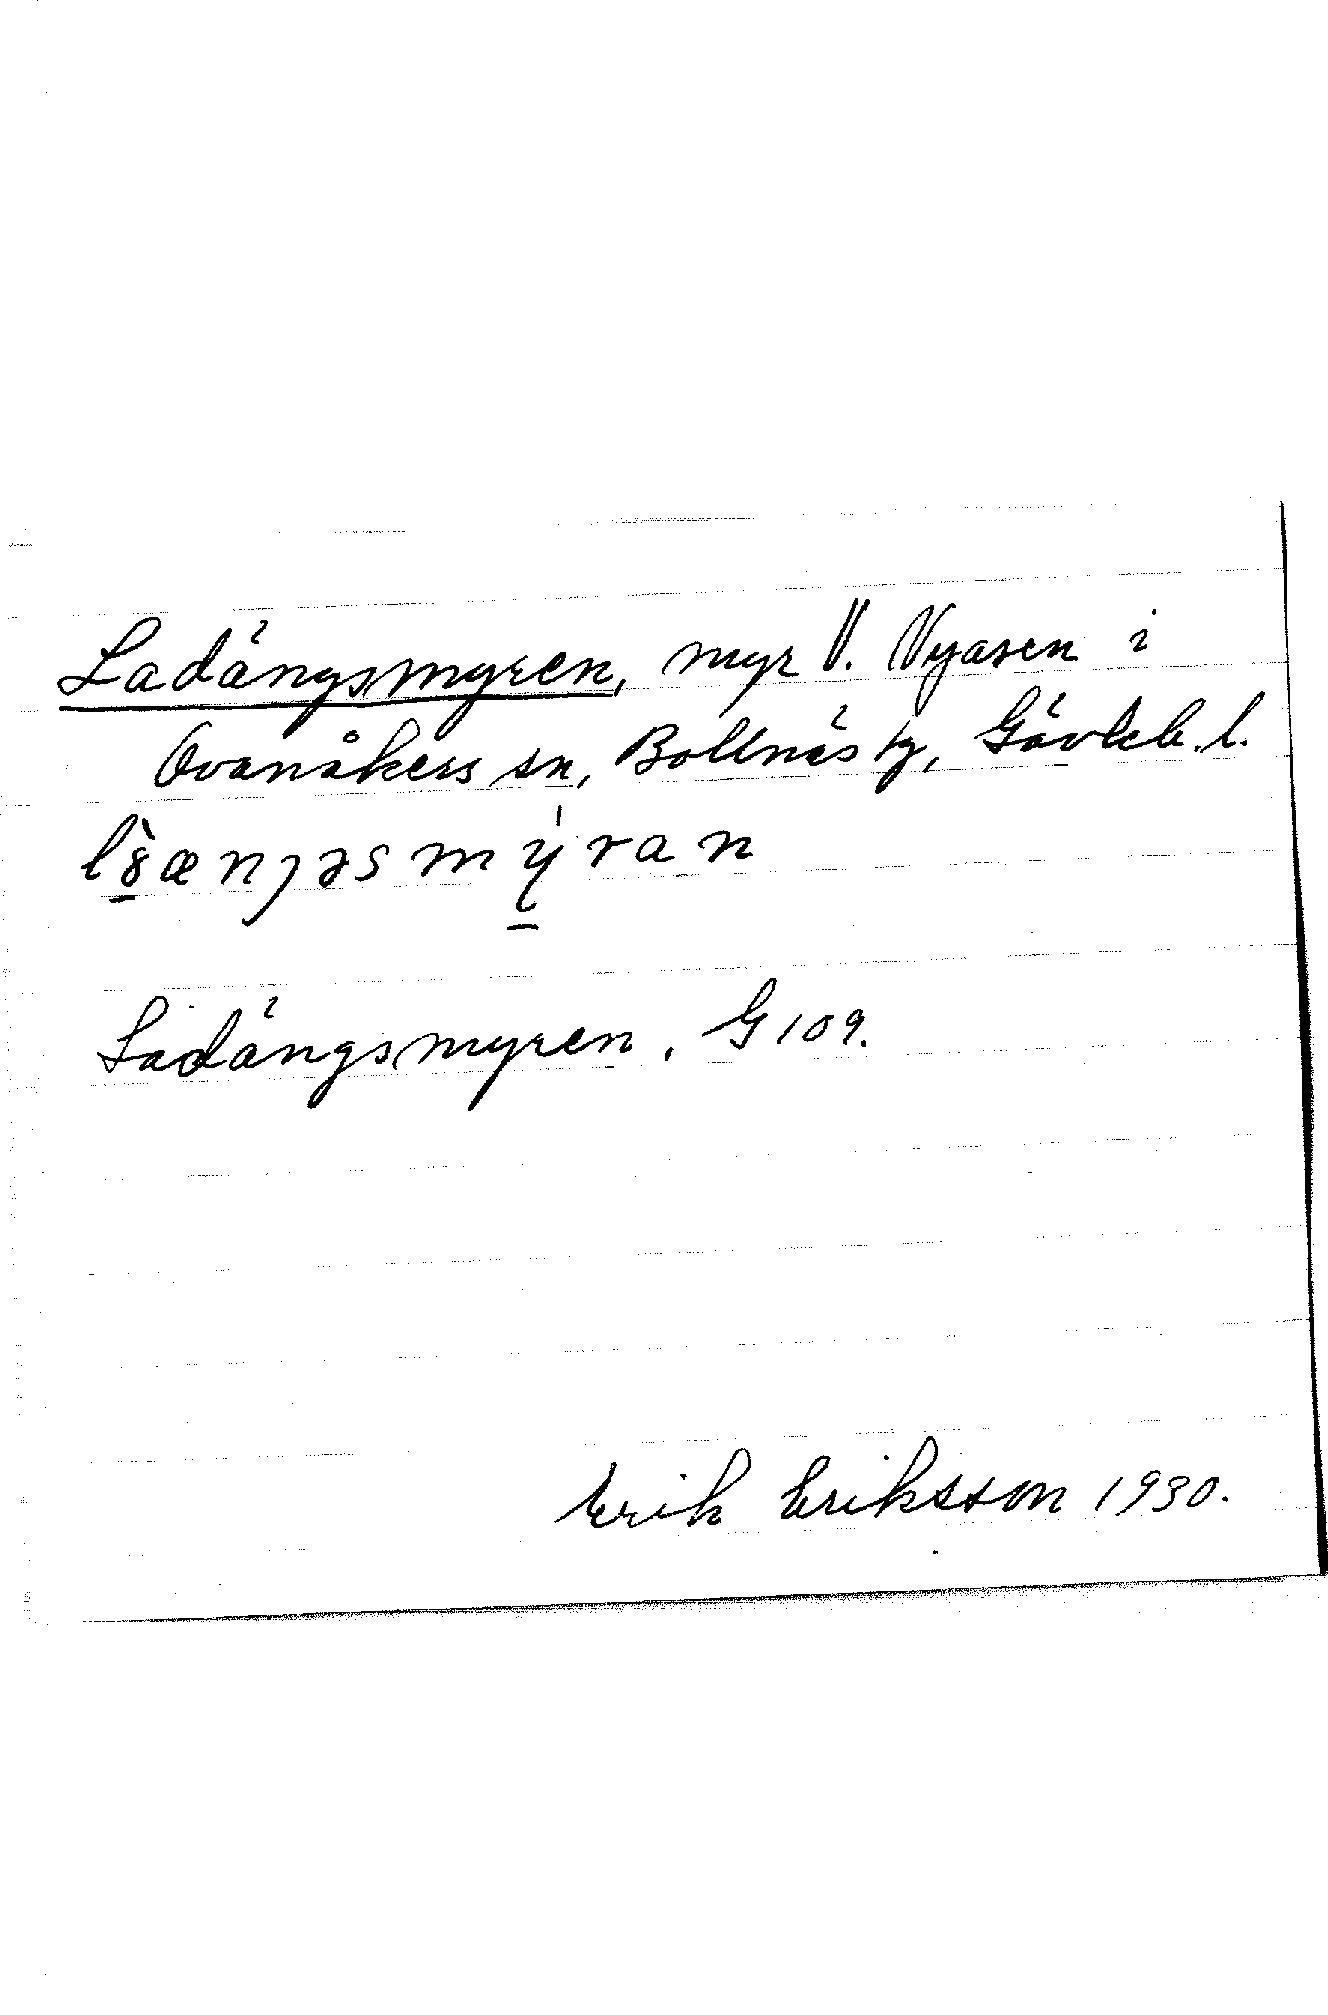 Ladängsmyren, myr V. Vyåsen i
Ovanåkers sn, Bollnäs tg, Gävleb. l.
Ladängsmyren, G 109.
Erik Eriksson 1930.